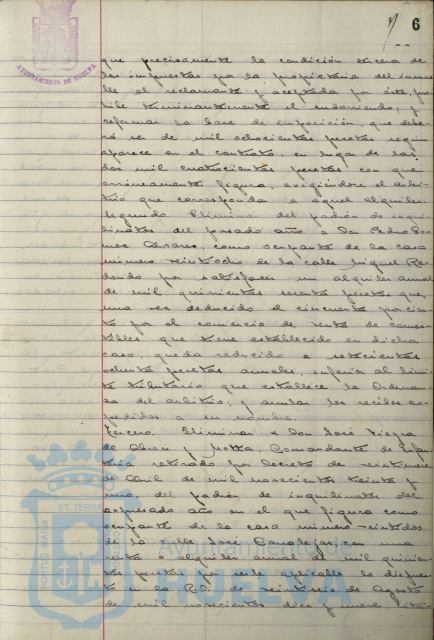 6
AYUNTAMIENTO DE HUELVA
que precisamente la condición tercera de
las impuestas por la propietaria del inmue
ble al reclamante y aceptada por éste, pro
hibe terminantemente el subarriendo; y
reformar la base de imposición, que debe
rá ser de mil ochocientas pesetas según
aparece en el contrato, en lugar de las
dos mil cuatrocientas pesetas con que
erróneamente figura, exigiéndose el arbi
trio que corresponda a aquel alquiler.
Segundo. Eliminar del padrón de inqui
linatos del pasado año a Don Pedro
como ocupante de la casa
número veintiocho de la calle Miguel Re
dondo por satisfacer un alquiler anual
de mil quinientas sesenta pesetas que,
una vez deducido el cincuenta por cien
to por el comercio de venta de comes
tibles que tiene establecido en dicha
casa, queda reducido a setecientas
ochenta pesetas anuales, inferior al lími
te tributario que establece la Ordenan
za del arbitrio; y anular los recibos ex
pedidos a su nombre.
Tercero. Eliminar a Don José
de y Motta, Comandante de Infan
tería retirado por Decreto de veintinueve
de Abril de mil novecientos treinta y
uno, del padrón de inquilinatos del
expresado año en el que figura como
ocupante de la casa número veintidos
de la calle José Canalejas, con una
renta o alquiler anual de mil quinien
tas pesetas por serle aplicable lo dispues
to en la R.O. de veintiseis de Agosto
de mil novecientos diez y nueve,
PORTUS MARIS ET TERRAE
Ayuntamiento de
HUELVA